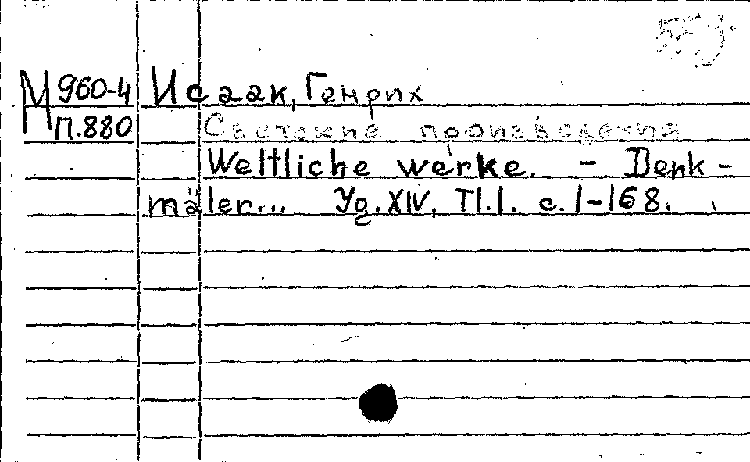 М 960-4 Исаак, Генрих
П.880 Светские произведения
Weltliche werke. - Denk-
mäler... Yg. XIV, Tl.1. c.1-168.